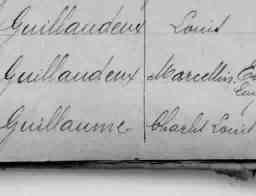 Guillaudeux Louis
Guillaudeux Marcellin
Guillaume Charles Louis